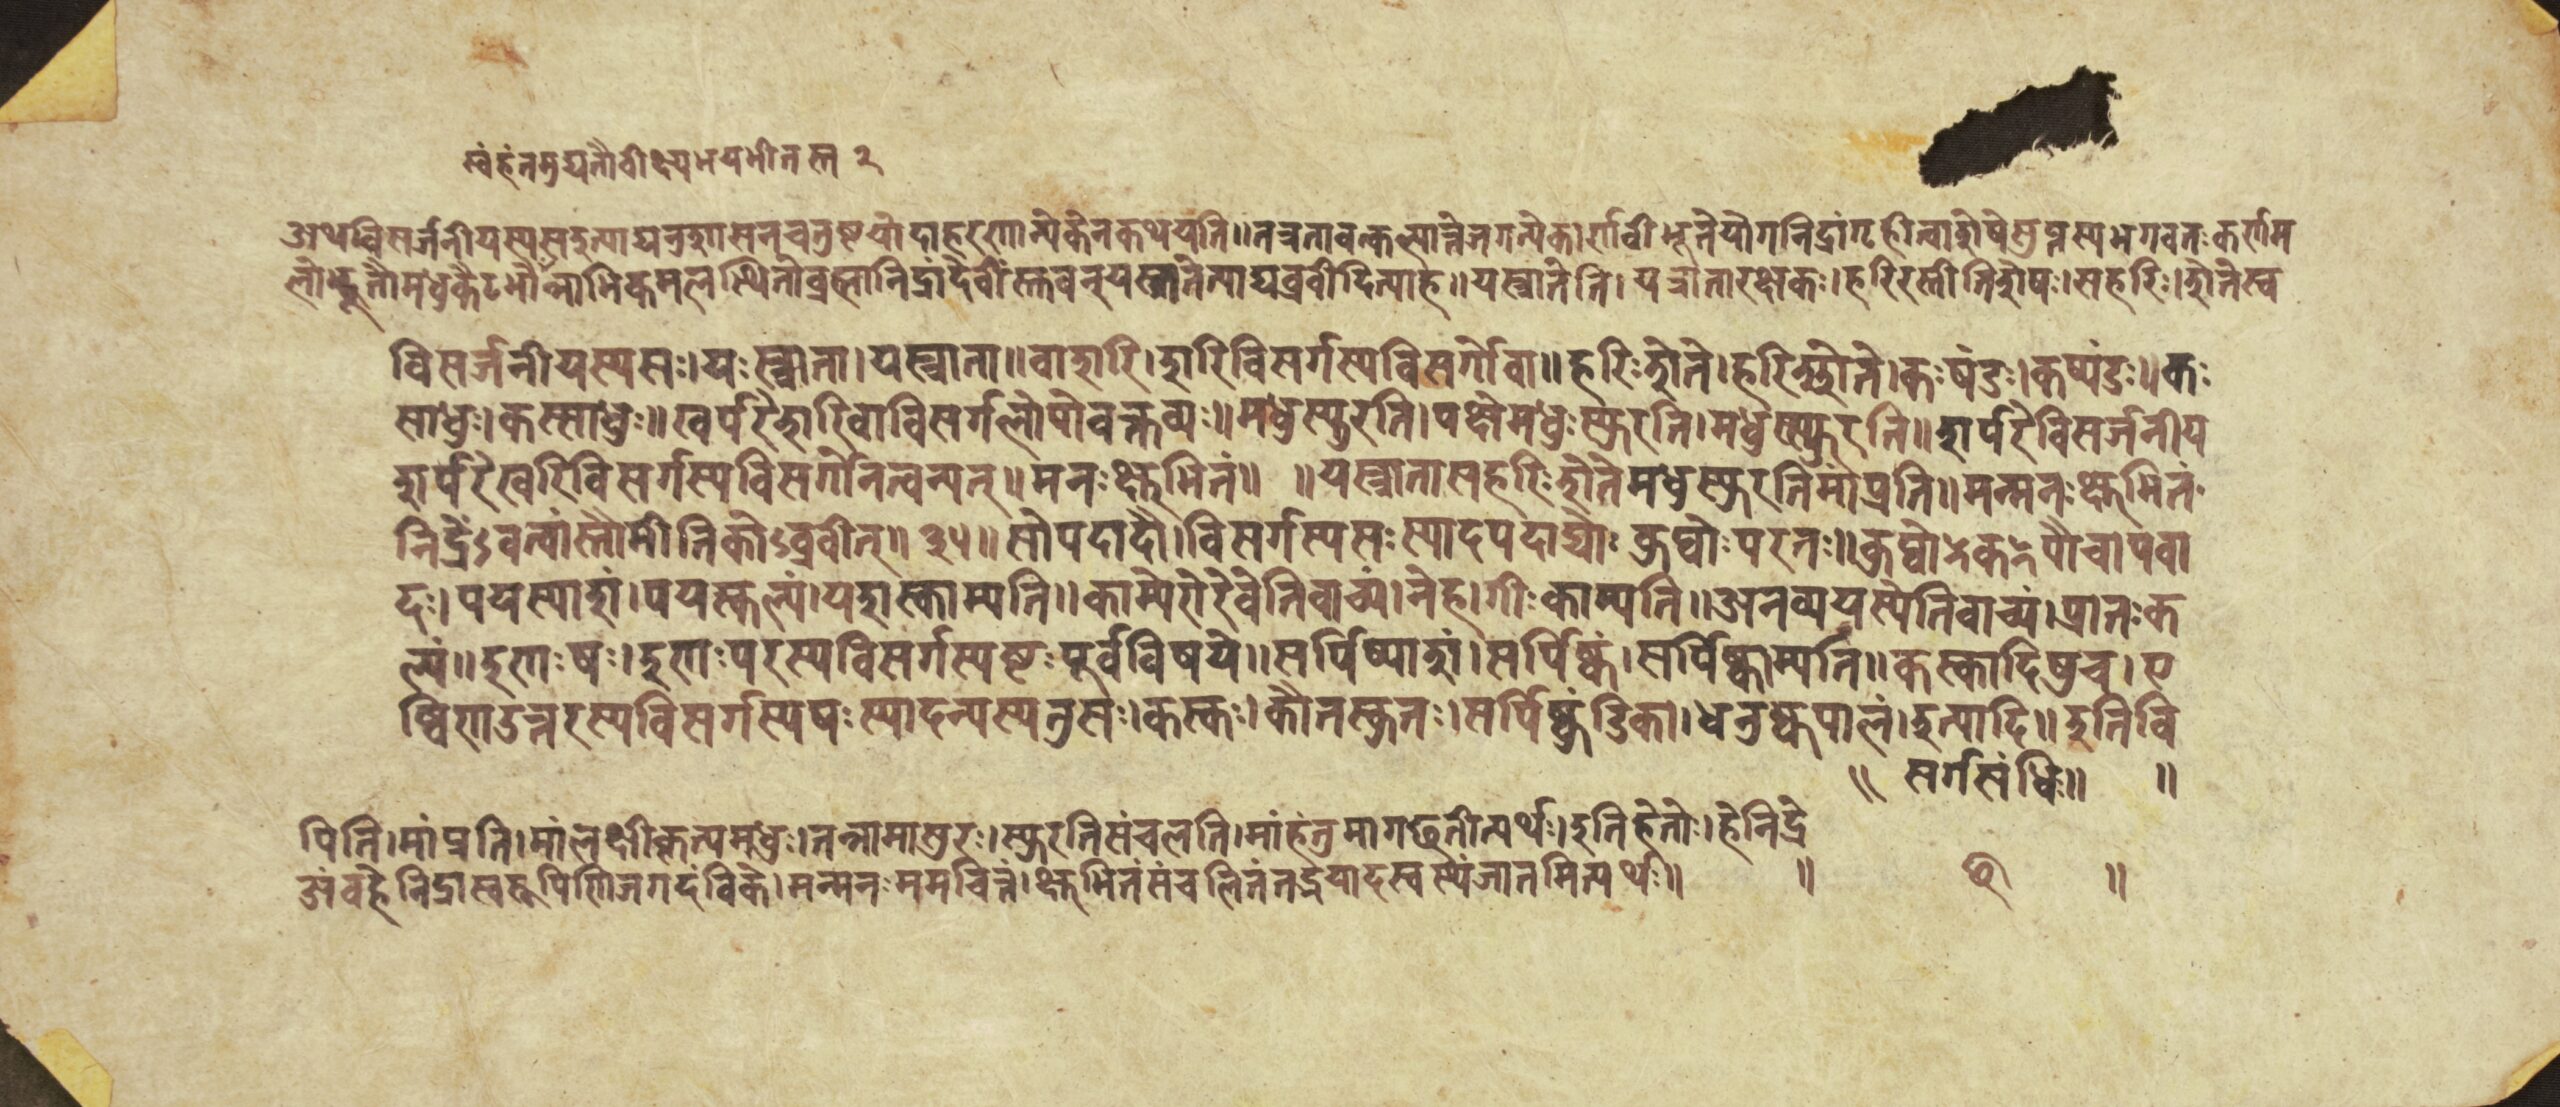 स्वंहंतमुद्यतौवीक्ष्यभयभीतस्त २
अथविसर्जनीयस्यसइत्याद्यनुशासनचतुष्टयोदाहरणान्येकेनकथयति॥तत्रतावत्कल्पान्तेजगत्येकार्णवीभूतेयोगनिद्रांगृहीत्वाशेषेसुप्तस्यभगवतःकर्णम
लोद्भूतौमधुकैटभौनाभिकमलस्थितोब्रह्मानिद्रांदेवींस्तुवन्यस्त्रातेत्याद्यब्रवीदित्याह॥यस्त्रातेति।यस्त्रातारक्षकः।हरिरस्तीतिशेषः।सहरिः।शेतेस्व
विसर्जनीयस्यसः।यःस्त्राता।यस्त्राता॥वाशरि।शरिविसर्गस्यविसर्गोवा॥हरिःशेते।हरिश्शेते।कःषंडः।कष्षंडः॥कः
साधुः।कस्साधुः॥खर्परेशरिवाविसर्गलोपोवक्तव्यः॥मधुस्फुरति।पक्षेमधुःस्फुरति।मधुस्स्फुरति॥शर्परेविसर्जनीय
शर्परेखरिविसर्गस्यविसर्गोनत्वन्यत्॥मनःक्षुभितं॥ ॥यस्त्रातासहरिःशेतेमधुस्फुरतिमांप्रति॥मन्मनःक्षुभितं
निद्रेऽवत्वांस्तौमीतिकोऽब्रवीत्॥३५॥सोपदादौ।विसर्गस्यसःस्यादपदाद्योःकुप्वोःपरतः॥कुप्वोःकपौचापवा
दः।पयस्पाशं।पयस्कल्पं।यशस्काम्यति॥काम्येरोरेवेतिवाच्यं।नेह।गीःकाम्यति॥अनव्ययस्येतिवाच्यं।प्रातःक
ल्पं॥इणःषः।इणःपरस्यविसर्गस्यषःपूर्वविषये॥सर्पिष्पाशं।सर्पिष्कं।सर्पिष्काम्यति॥कस्कादिषुच।ए
ष्विणउत्तरस्यविसर्गस्यषःस्यादन्यस्यतुसः।कस्कः।कौतस्कुतः।सर्पिष्कुंडिका।धनुष्कपालं।इत्यादि॥इतिवि
॥ सर्गसंधिः॥ ॥
पिति।मांप्रति।मांलक्षीकृत्यमधुः।तन्नामासुरः।स्फुरतिसंचलति।मांहंतुमागछतीत्यर्थः।इतिहेतोः।हेनिद्रे
अंबहेनिद्रास्वरूपिणिजगदंबिके।मन्मनःममचित्तं।क्षुभितंसंचलितंतद्भयादस्वस्थंजातमित्यर्थः॥ ॥ ॥